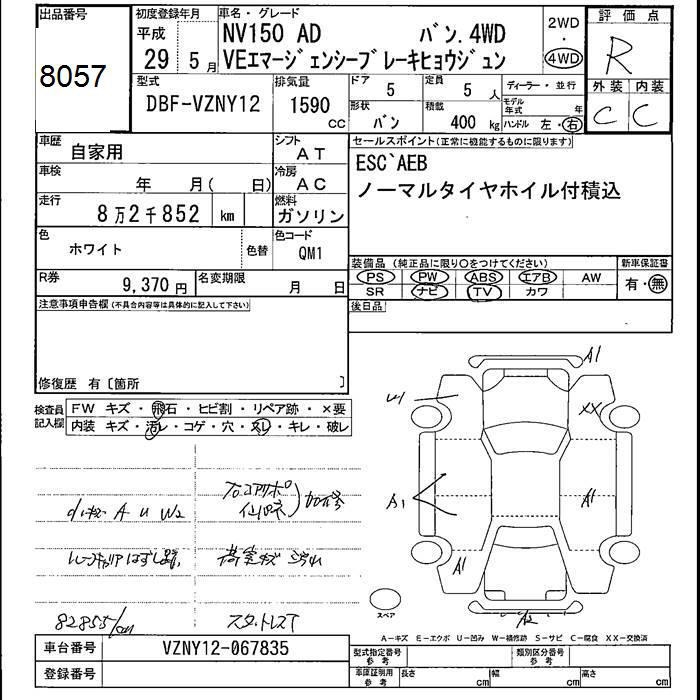 出品番号 初度登録年月 車名・グレード 評価点
8057 平成 29 5月 NV150 AD バン.4WD 2WD・4WD R
VEエマージェンシーブレーキヒョウジュン
型式 排気量 ドア 定員 ディーラー・並行 外装 内装
DBF-VZNY12 1590 CC 5 5人 モデル年式 年 C C
形状 バン 積載 400 kg ハンドル 左・右
車歴 自家用 シフト AT セールスポイント(正常に機能するものに限ります)
車検 年 月( 日) 冷房 AC ESC`AEB
走行 8万2千852 km 燃料 ガソリン ノーマルタイヤホイル付積込
色 ホワイト 色替 色コード QM1
装備品(純正品に限り○をつけてください) 新車保証書
R券 9,370円 名変期限 月 日 PS PW ABS エアB AW 有・無
SR ナビ TV カワ
注意事項申告欄(不具合内容等は具体的に記入して下さい) 後日品
修復歴 有〔箇所 〕
検査員記入欄 FW キズ・飛石・ヒビ割・リペア跡・×要
内装 キズ・汚レ・コゲ・穴・スレ・キレ・破レ
A1
U1 XX
A A U W2
A1 A1
レーンキャリアはずし跡,
A1
82855/km スタットレスT
スペア
A−キズ E−エクボ U−凹み W−補修跡 S−サビ C−腐食 XX−交換済
車台番号 VZNY12-067835 型式指定番号 参考 類別区分番号 参考
登録番号 車庫証明用 参考 長さ cm 幅 cm 高さ cm